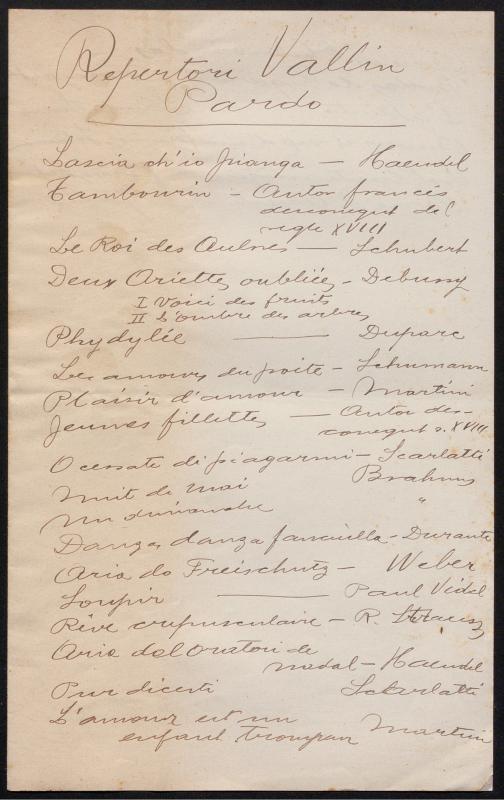 Repertori Vallin
Pardo
Lascia ch'io pianga — Haendel
Tambourin — Autor francés
desconegut del
segle XVIII
Le Roi des Aulnes — Schubert
Deux Ariettes oubliées - Debussy
I Voici des fruits
II L'ombre des arbres
Phydylée — Duparc
Les amours du poète — Schumann
Plaisir d'amour — Martini
Jeunes fillettes — Autor des-
conegut s. XVIII
O cessate di piagarmi — Scarlatti
Nuit de Mai Brahms
Un dimanche "
Danza, danza fanciulla - Durante
Aria do Freischutz — Weber
Soupir — Paul Vidal
Rêve crepusculaire — R. Strauss
Aria del Oratori de
nadal — Haendel
Pur dicesti Scarlatti
L'amour est un
enfant trompeur Martini